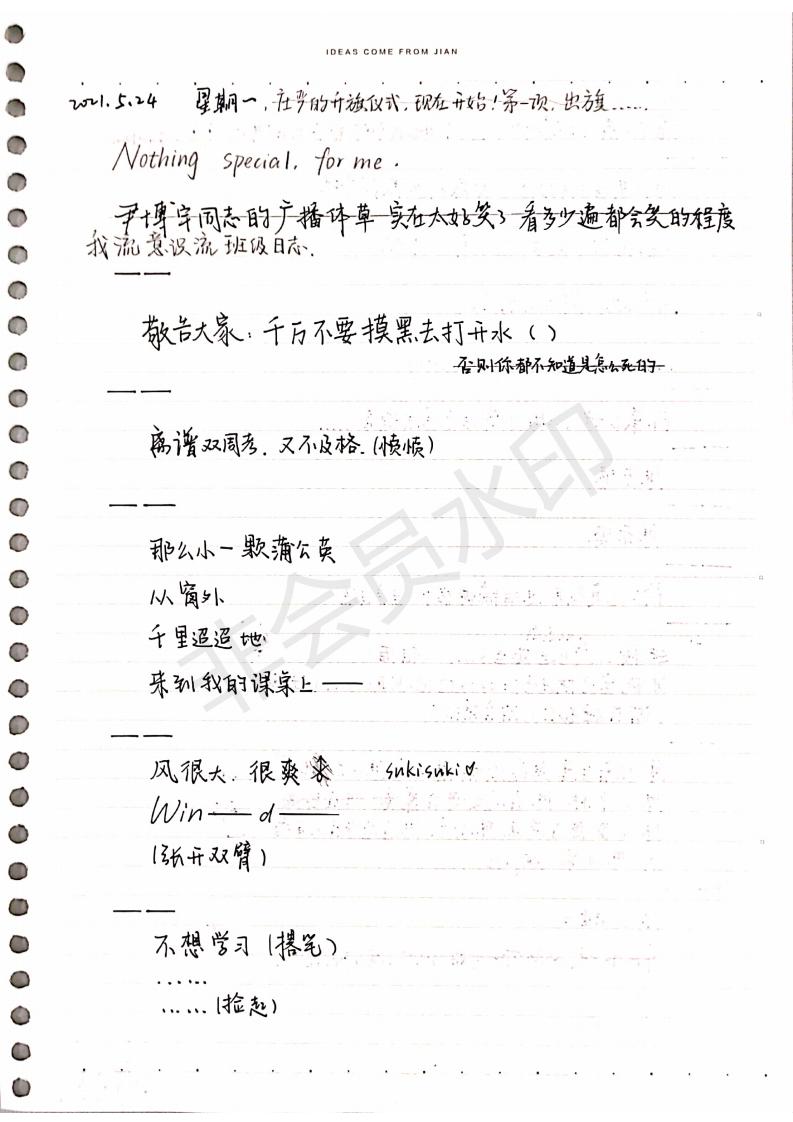 IDEAS COME FROM JIAN
2021.5.24 星期一，庄严的升旗仪式，现在开始！第一项，出旗……
Nothing special, for me.
尹博宇同志的广播体草 实在太好笑了 看多少遍都会笑的程度
我流意识流班级日志.
——
敬告大家：千万不要摸黑去打开水（）
否则你都不知道是怎么死的
——
离谱双周考，又不及格.（愤愤）
——
那么小一颗蒲公英
从窗外
千里迢迢地
来到我的课桌上——
——
风很大，很爽 sukisuki♡
Win——d——
（张开双臂）
——
不想学习（撂笔）
……
……（捡起）
非会员水印